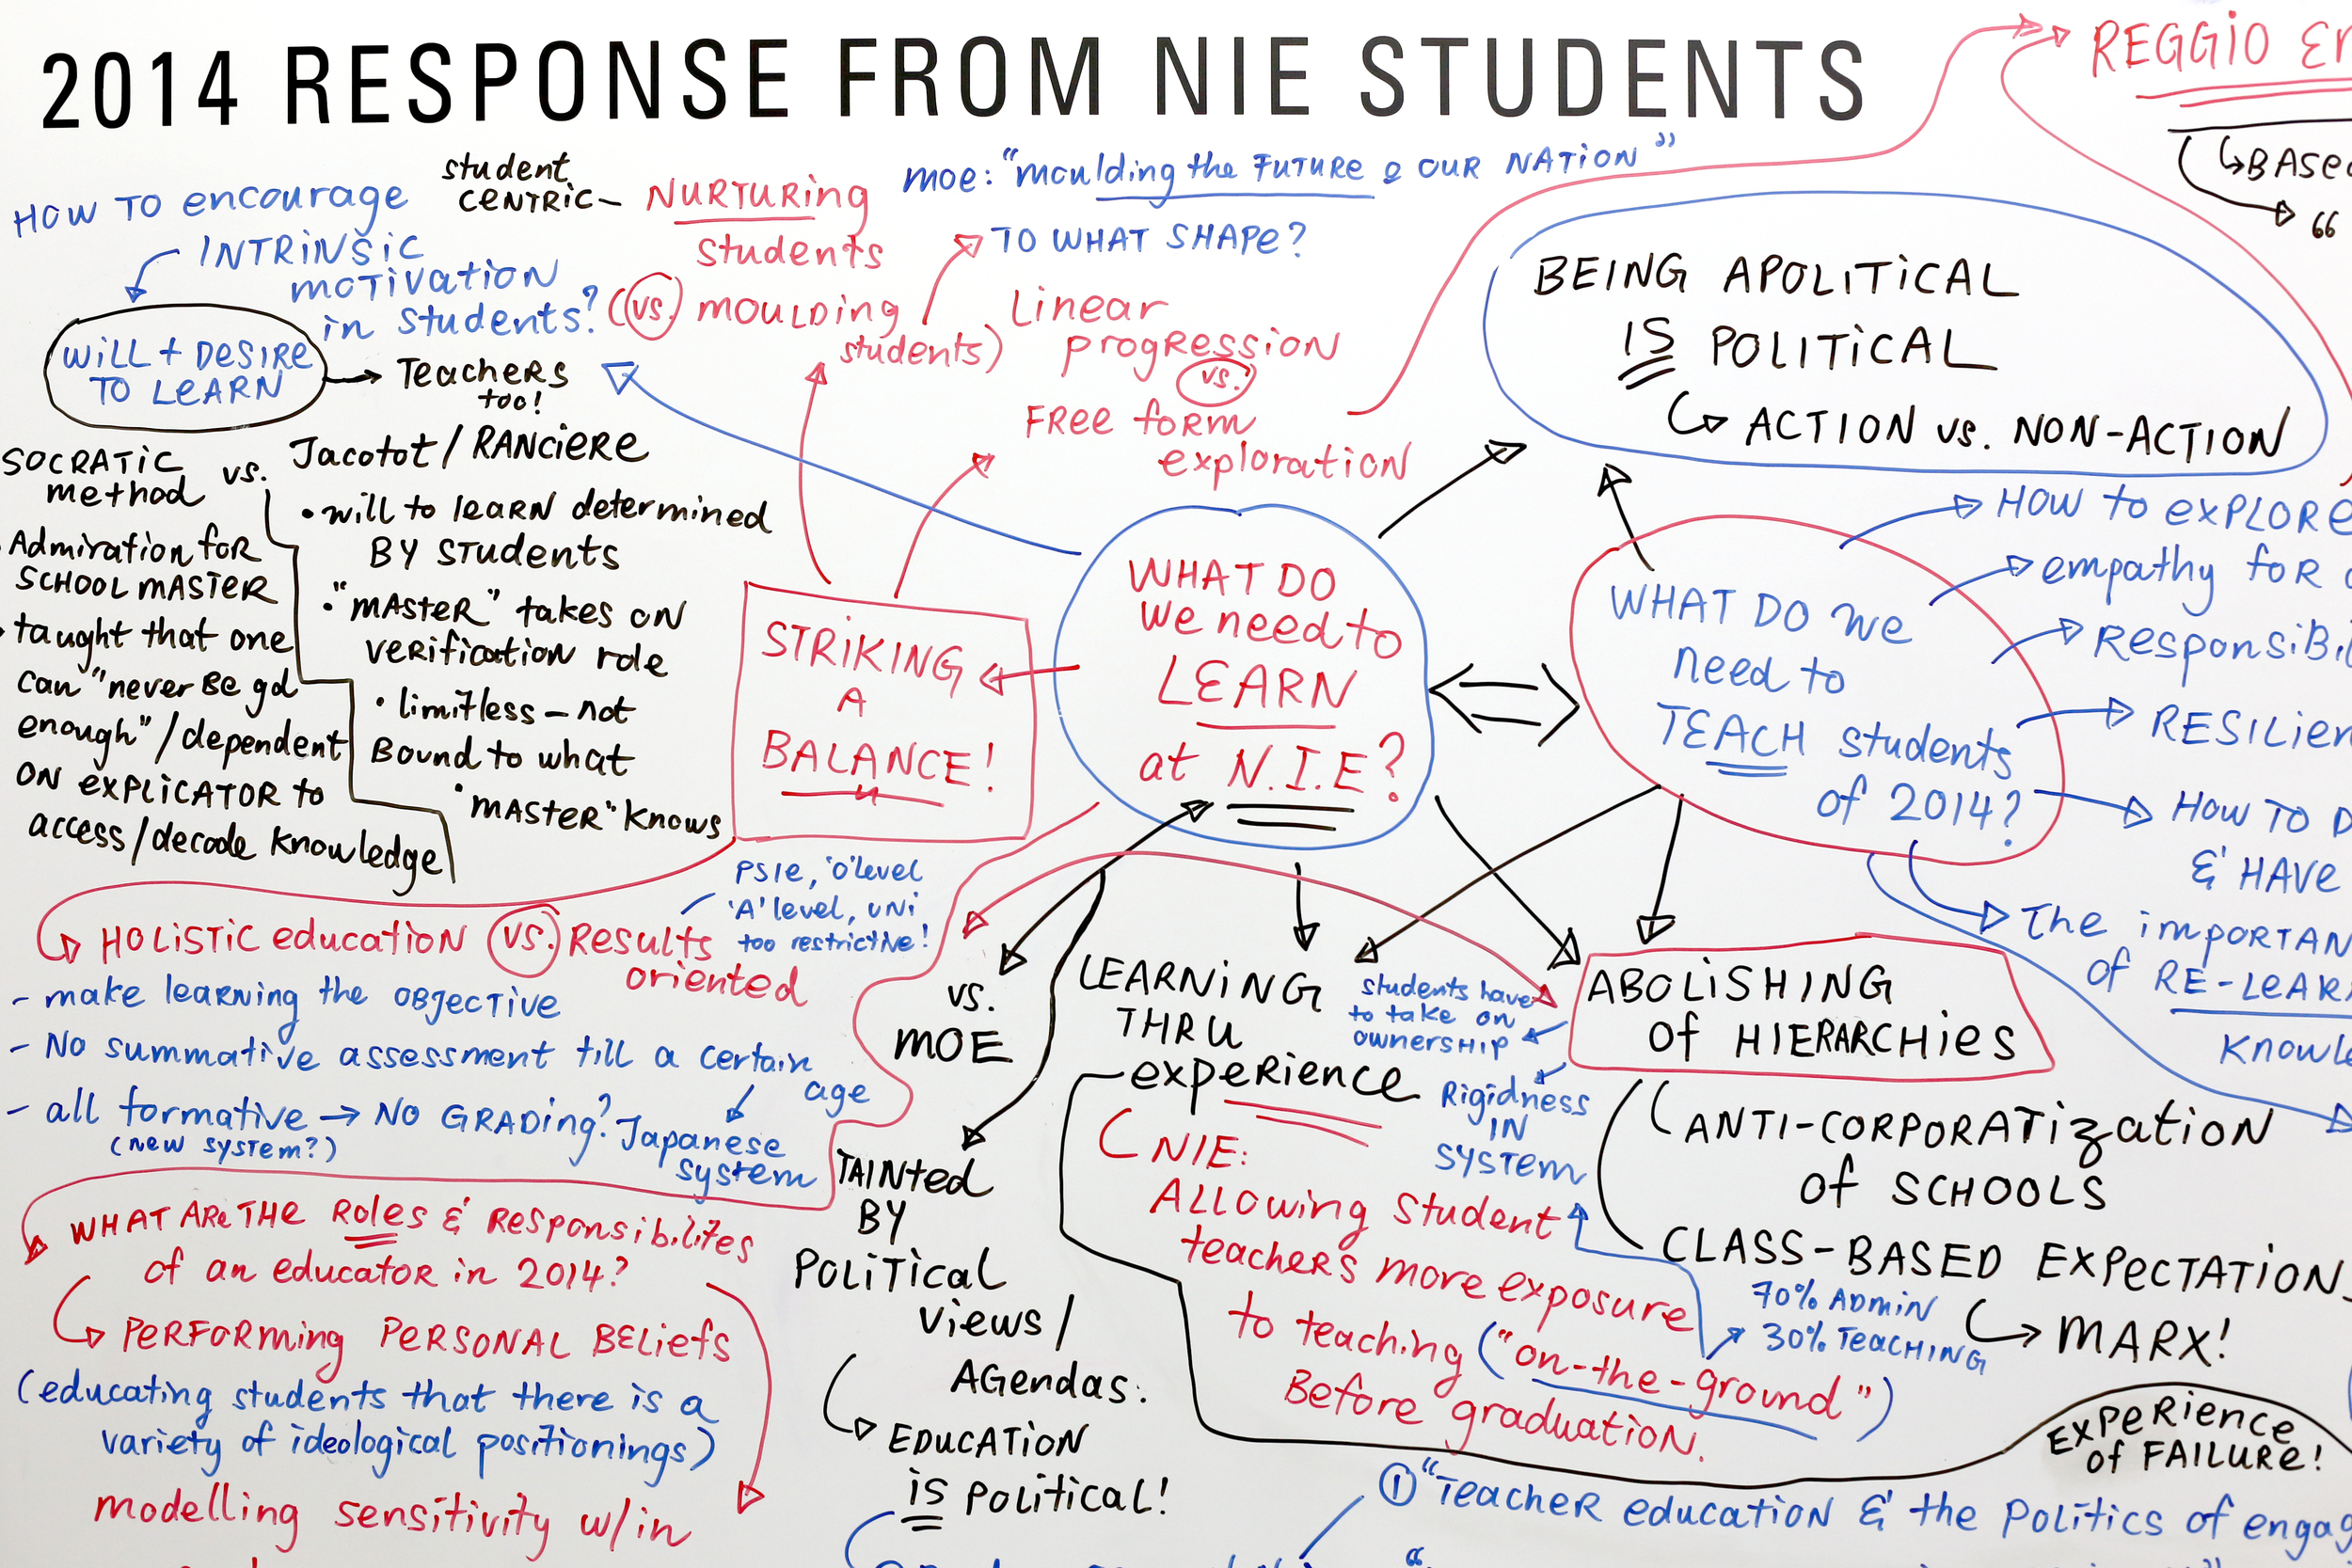 2014 RESPONSE FROM NIE STUDENTS
REGGIO
BASED
"
HOW TO encourage
INTRINSIC
MOTIVATION
in STUDENTS?
student
CENTRIC— NURTURING
students
(vs. MOULDING
students)
MOE: "moulding the FUTURE of OUR NATION"
TO WHAT SHAPE?
Linear
progression
vs.
FREE form
exploration
BEING APOLITICAL
IS POLITICAL
ACTION vs. NON-ACTION
WILL + DESIRE
TO LEARN
Teachers
too!
SOCRATIC
method
vs.
Jacotot / RANCIERE
Admiration for
SCHOOL MASTER
taught that one
can "never be gd
enough" / dependent
ON EXPLICATOR to
access/decode knowledge
• will to learn determined
BY STUDENTS
• "MASTER" takes on
verification role
• limitless – not
Bound to what
"MASTER" knows
STRIKING
A
BALANCE!
WHAT DO
we need to
LEARN
at N.I.E?
WHAT DO we
need to
TEACH students
of 2014?
HOW to EXPLORE
empathy for
RESILIEN
HOW TO
& HAVE
The
of RE-LEAR
PSLE, 'O' level
'A' level, uni
too restrictive!
HOLISTIC education vs. Results
oriented
- make learning the OBJECTIVE
- No summative assessment till a certain
age
- all formative → NO GRADING?
(new system?)
Japanese
system
WHAT ARE THE ROLES & RESPONSIBILITES
of an educator in 2014?
PERFORMING PERSONAL BELIEFS
(educating students that there is a
variety of ideological positionings)
modelling sensitivity w/in
vs.
MOE
TAINTED
BY
POLITICAL
views /
AGENDAS.
EDUCATION
is POLITICAL!
LEARNING
THRU
experience
NIE:
ALLOWING student
teachers more exposure
to teaching ("on-the-ground")
Before graduation.
students have
to take on
ownership
Rigidness
IN
SYSTEM
ABOLISHING
of HIERARCHIES
ANTI-CORPORATIZATION
of SCHOOLS
CLASS-BASED EXPECTATION
MARX!
70% ADMIN
30% TEACHING
EXPERIENCE
of FAILURE!
① "Teacher education & the politics of engag